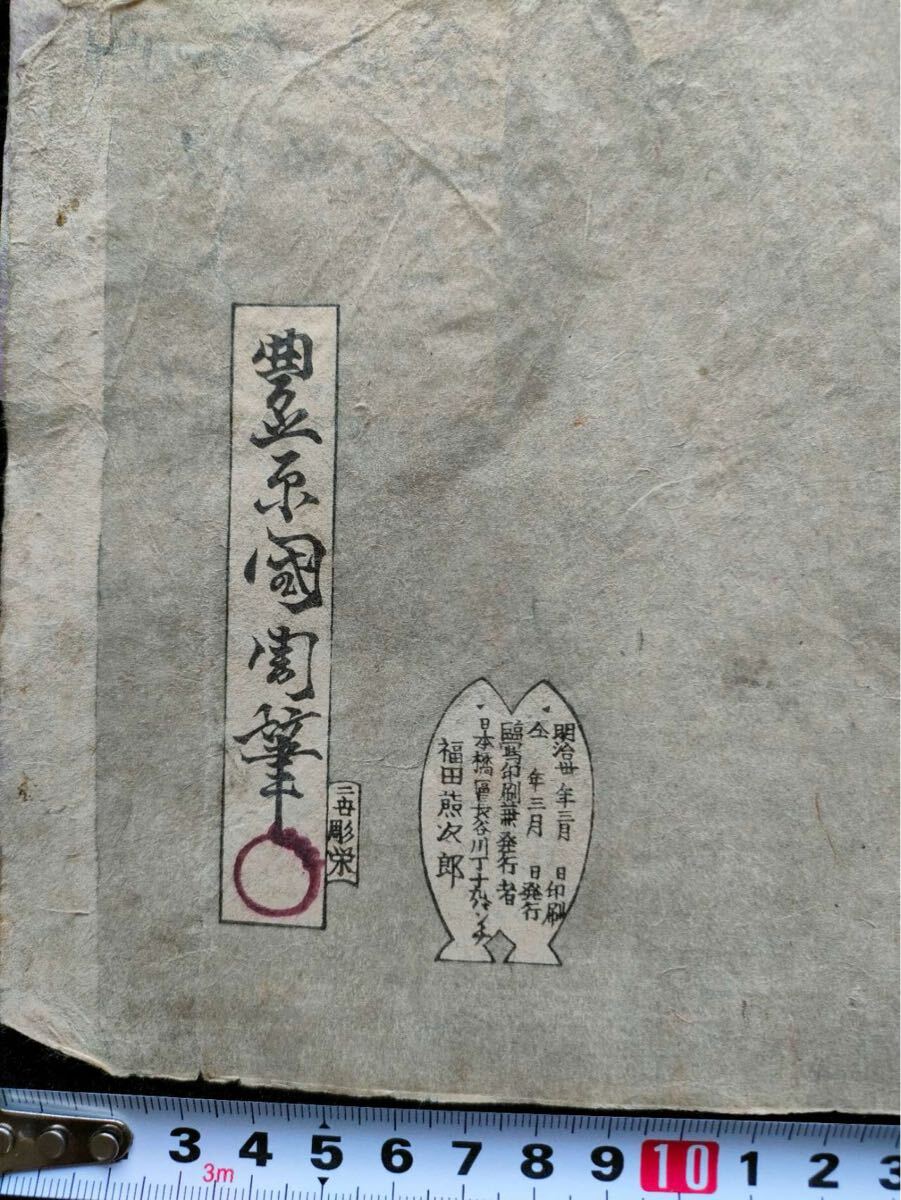 豊原國周筆
二世彫栄
明治卅年三月 日印刷
仝 年三月 日発行
臨写印刷兼発行者
日本橋區長谷川丁十九バンチ
福田熊次郎
3 4 5 6 7 8 9 10 1 2 3
3m